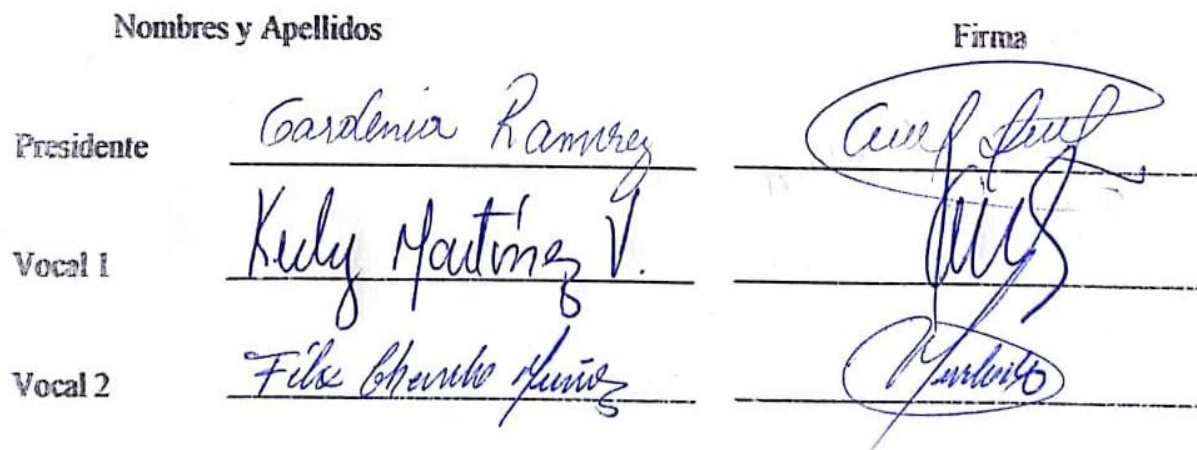 Nombres y Apellidos Firma
Presidente Gardenia Ramirez
Vocal 1 Kely Martínez V.
Vocal 2 Muñoz